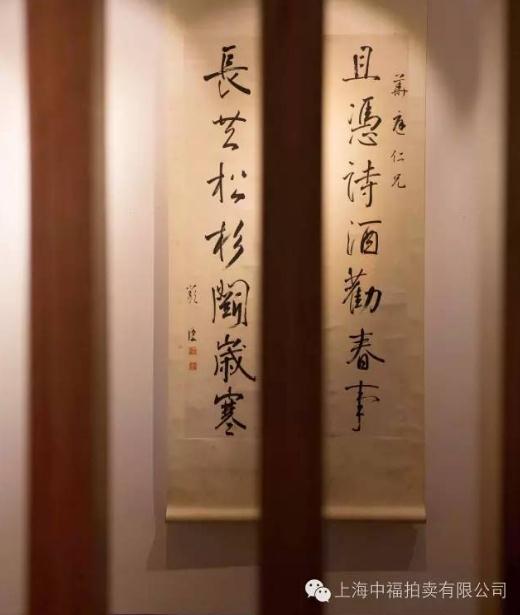 華庭仁兄
且憑詩酒勸春事
長共松杉鬭歲寒
上海中福拍卖有限公司